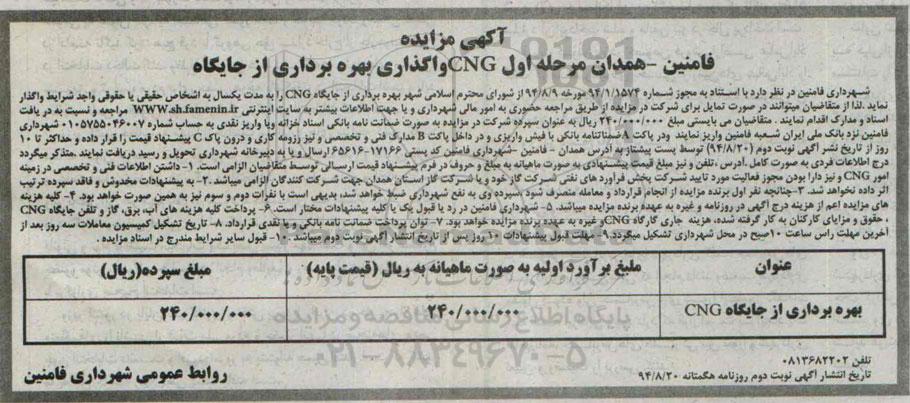 آگهی مزایده
فامنین -همدان مرحله اول CNGواگذاری بهره برداری از جایگاه
شهرداری فامنین در نظر دارد با استناد به مجوز شماره ۹۴/۱/۱۵۷۴ مورخه ۹۴/۸/۹ از شورای محترم اسلامی شهر بهره برداری از جایگاه CNG را به مدت یکسال به اشخاص حقیقی یا حقوقی واجد شرایط واگذار
نماید .لذا از متقاضیان میتوانند در صورت تمایل برای شرکت در مزایده از طریق مراجعه حضوری به امور مالی شهرداری و یا جهت اطلاعات بیشتر به سایت اینترنتی WWW.sh.famenin.ir مراجعه و نسبت به در یافت
اسناد و مدارک اقدام نمایند . متقاضیان می بایستی مبلغ ۲۴۰/۰۰۰/۰۰۰ ریال به عنوان سپرده شرکت در مزایده به صورت ضمانت نامه بانکی اسناد خزانه ویا واریز نقدی به حساب شماره ۰۱۰۵۷۵۵۰۴۶۰۰۷ شهرداری
فامنین نزد بانک ملی ایران شعبه فامنین واریز نمایند ودر پاکت Aضمانتنامه بانکی یا فیش واریزی و در داخل پاکت B مدارک فنی و تخصصی و نیز رزومه کاری و درون پاک C پیشنهاد قیمت را قرار داده و حداکثر تا ۱۰
روز از تاریخ نشر آگهی نوبت دوم (۹۴/۸/۲۰) توسط پست پیشتاز به آدرس همدان - فامنین -شهرداری فامنین کد پستی ۱۷۱۶۶-۶۵۶۱۶ارسال و یا به دبیرخانه شهرداری تحویل و رسید دریافت نمایند .متذکر میگردد
درج اطلاعات فردی به صورت کامل .آدرس ،تلفن و نیز مبلغ قیمت پیشنهادی به صورت ماهیانه به مبلغ و حروف در فرم پیشنهاد قیمت ارسالی توسط متقاضیان الزامی است. ۱- داشتن اطلاعات فنی و تخصصی در زمینه
امور CNG و نیز دارا بودن مجوز فعالیت مورد تایید شرکت پخش فرآورد های نفتی شرکت گاز خود و یا شرکت گاز استان همدان جهت شرکت کنندگان الزامی میباشد .۲- به پیشنهادات مخدوش و فاقد سپرده ترتیب
اثر داده نخواهد شد. ۳-چنانچه نفر اول برنده مزایده از انجام قرارداد و معامله منصرف شود ،سپرده وی به نفع شهرداری ضبط خواهد شد، بدیهی است با نفرات دوم و سوم نیز به همین صورت خواهد بود. ۴-کلیه هزینه
های مزایده اعم از هزینه درج آگهی در روزنامه و غیره به عهده برنده مزایده میباشد. ۵-شهرداری فامنین در رد یا قبول یک یا کلیه پیشنهادات مختار است. ۶- پرداخت کلیه هزینه های آب، برق، گاز و تلفن جایگاه CNG
، حقوق و مزایای کارکنان به کار گرفته شده، هزینه جاری کارگاه CNGو غیره به عهده برنده مزایده خواهد بود. ۷- توان پرداخت ضمانت نامه بانکی و یا نقدی قرارداد. ۸- تاریخ تشکیل کمیسیون معاملات سه روز بعد از
آخرین مهلت راس ساعت ۱۰صبح در محل شهرداری تشکیل میگردد.۹- مهلت قبول پیشنهادات ۱۰ روز پس از تاریخ انتشار آگهی نوبت دوم میباشد .۱۰- قبول سایر شرایط مندرج در اسناد مزایده .
عنوان
ملبغ بر آورد اولیه به صورت ماهیانه به ریال (قیمت پایه)
مبلغ سپرده(ریال)
بهره برداری از جایگاه CNG
۲۴۰/۰۰۰/۰۰۰
۲۴۰/۰۰۰/۰۰۰
پایگاه اطلاع رسانی مناقصه و مزایده
۰۲۱-۸۸۳۴۹۶۷۰-۵
تلفن ۰۸۱۳۶۸۲۲۰۲
تاریخ انتشار آگهی نوبت دوم روزنامه هگمتانه ۹۴/۸/۲۰
روابط عمومی شهرداری فامنین